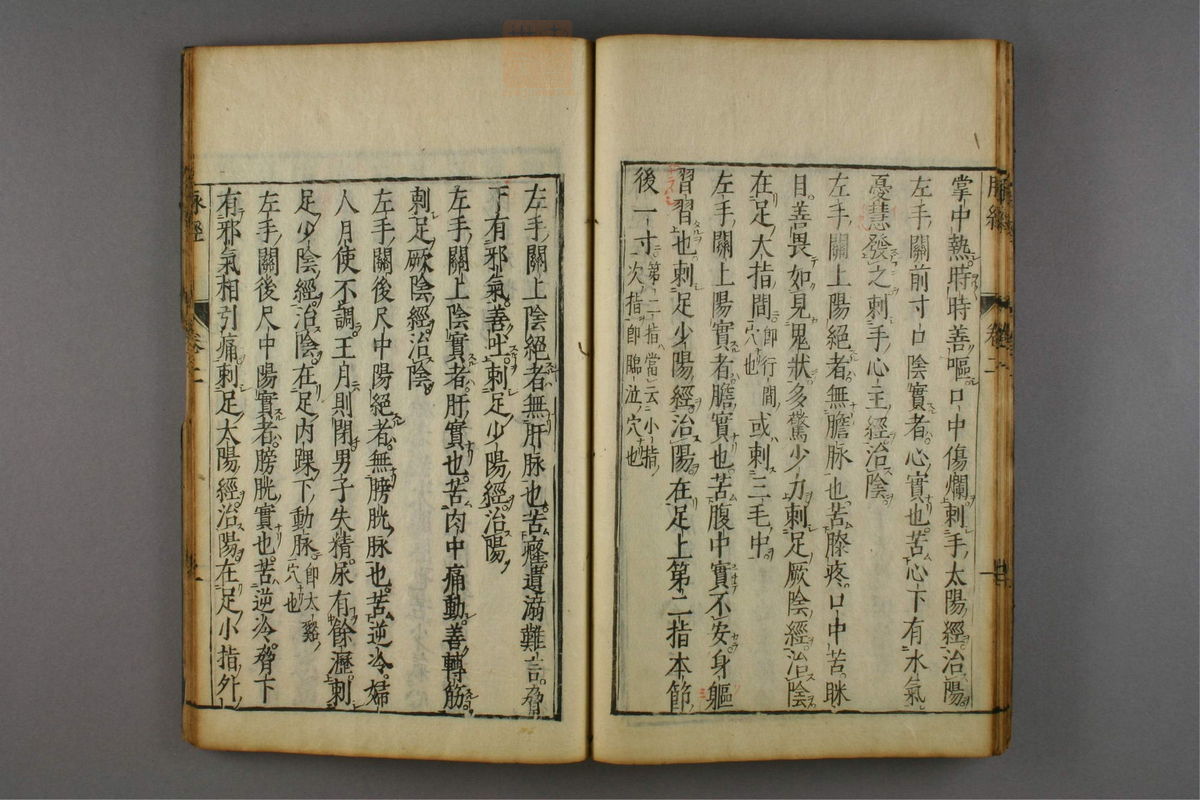 脉經
卷二
掌中熱時時善嘔口中傷爛刺手太陽經治陽
左手關前寸口陰實者心實也苦心下有水氣
憂恚發之刺手心主經治陰
左手關上陽絕者無膽脉也苦膝疼口中苦眯
目善畏如見鬼狀多驚少力刺足厥陰經治陰
在足大指間即行間穴也或刺三毛中
左手關上陽實者膽實也苦腹中實不安身軀
習習也刺足少陽經治陽在足上第二指本節
後一寸第二指當云小指次指即臨泣穴也
左手關上陰絕者無肝脉也苦癃遺溺難言脅
下有邪氣善吐刺足少陽經治陽
左手關上陰實者肝實也苦肉中痛動善轉筋
刺足厥陰經治陰
左手關後尺中陽絕者無膀胱脉也苦逆冷婦
人月使不調王月則閉男子失精尿有餘瀝刺
足少陰經治陰在足內踝下動脉即太谿穴也
左手關後尺中陽實者膀胱實也苦逆冷脅下
有邪氣相引痛刺足太陽經治陽在足小指外
脉經
卷二